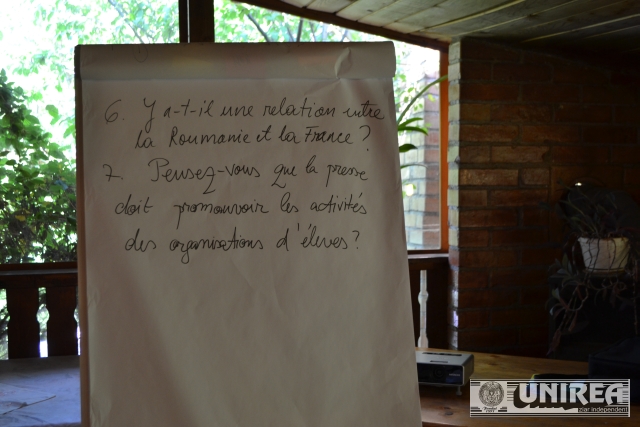 6. Y a-t-il une relation entre
la Roumanie et la France ?
7. Pensez-vous que la presse
doit promouvoir les activités
des organisations d'élèves ?
UNIREA
ziar independent